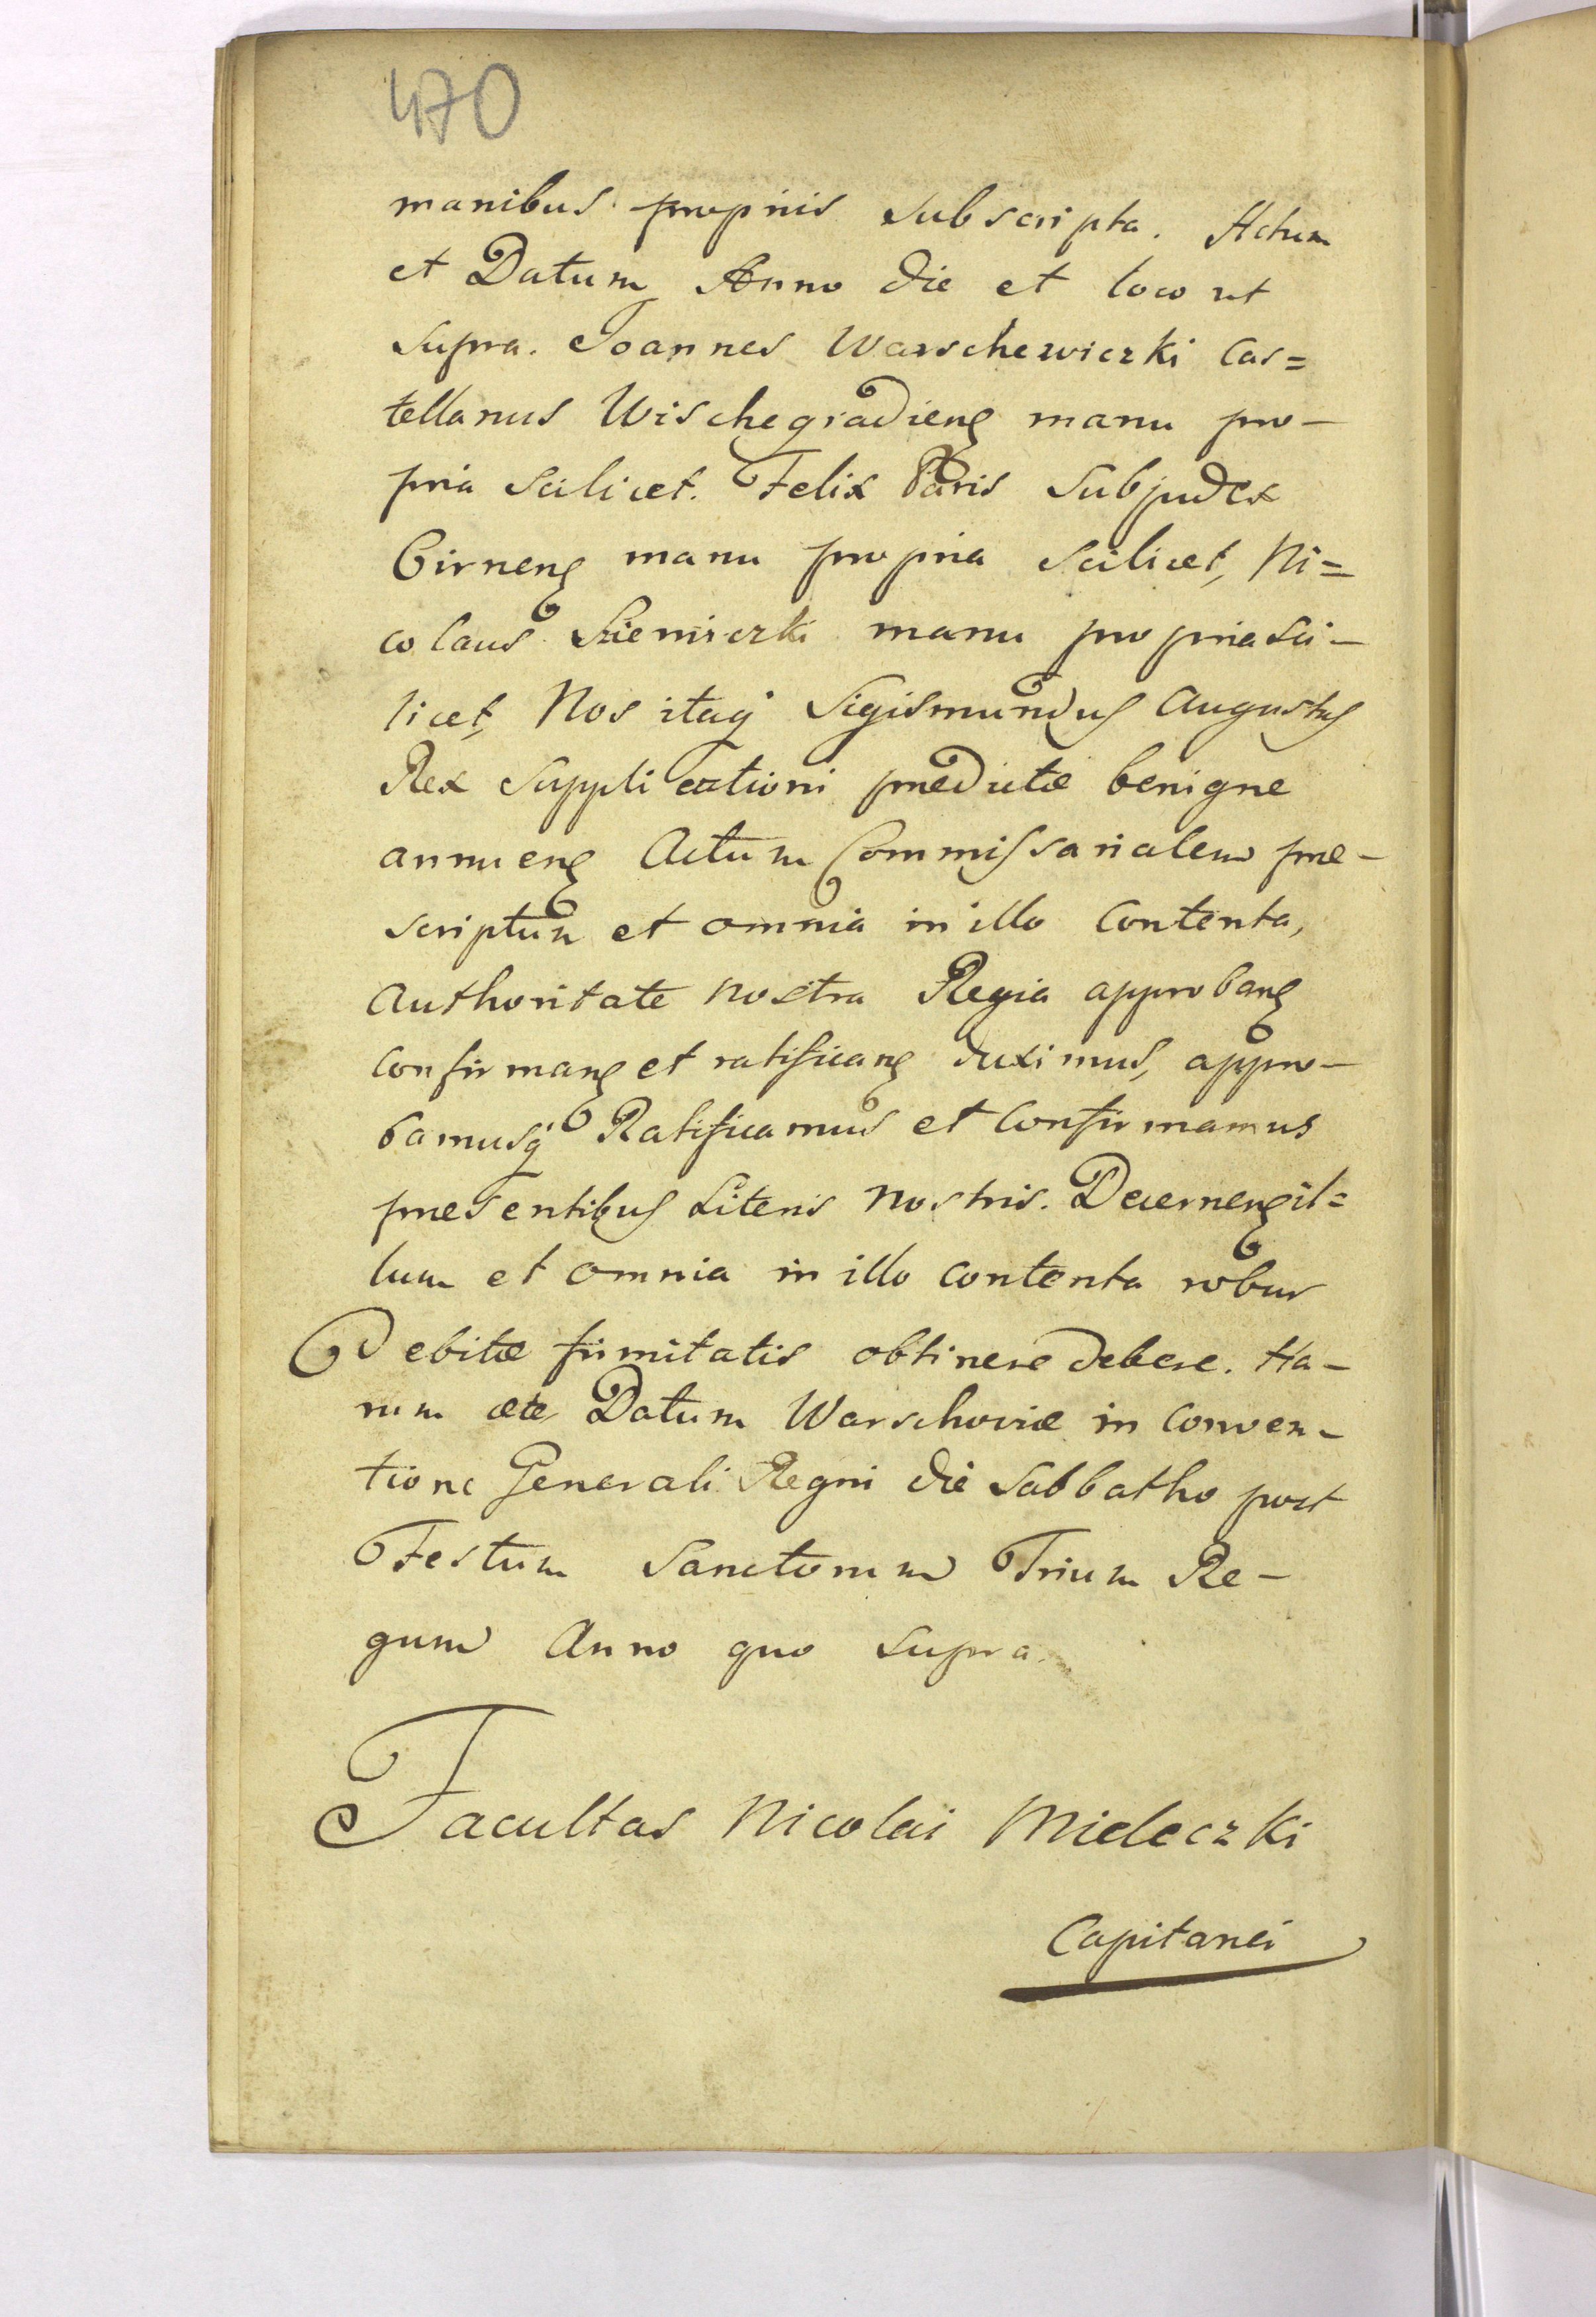 470
manibus propriis subscripta. Actum
et Datum Anno die et loco ut
supra. Joannes Warschewiczki Cas=
tellanus Wischegradieñ manu pro-
pria scilicet. Felix Paris Subjudex
Cirneñ manu propria scilicet, Ni=
colaus Sieniczki manu propria sci-
licet, Nos itaq Sigismundus Augustus
Rex supplicationi predictæ benigne
annueñ Actum Commissarialem præ-
scriptum et omnia in illo Contenta,
Authoritate nostra Regia approbañ
Confirmañ et ratificañ duximus, appro-
bamusq Ratificamus et Confirmamus
præsentibus Literis nostris. Decerneñ il=
lum et omnia in illo contenta robur
Debitæ firmitatis obtinere debere. Ha-
rum ætc Datum Warschoviæ in Conven-
tione Generali Regni die Sabbatho post
Festum Sanctorum Trium Re-
gum Anno quo supra.
Facultas Nicolai Mieleczki
Capitanei